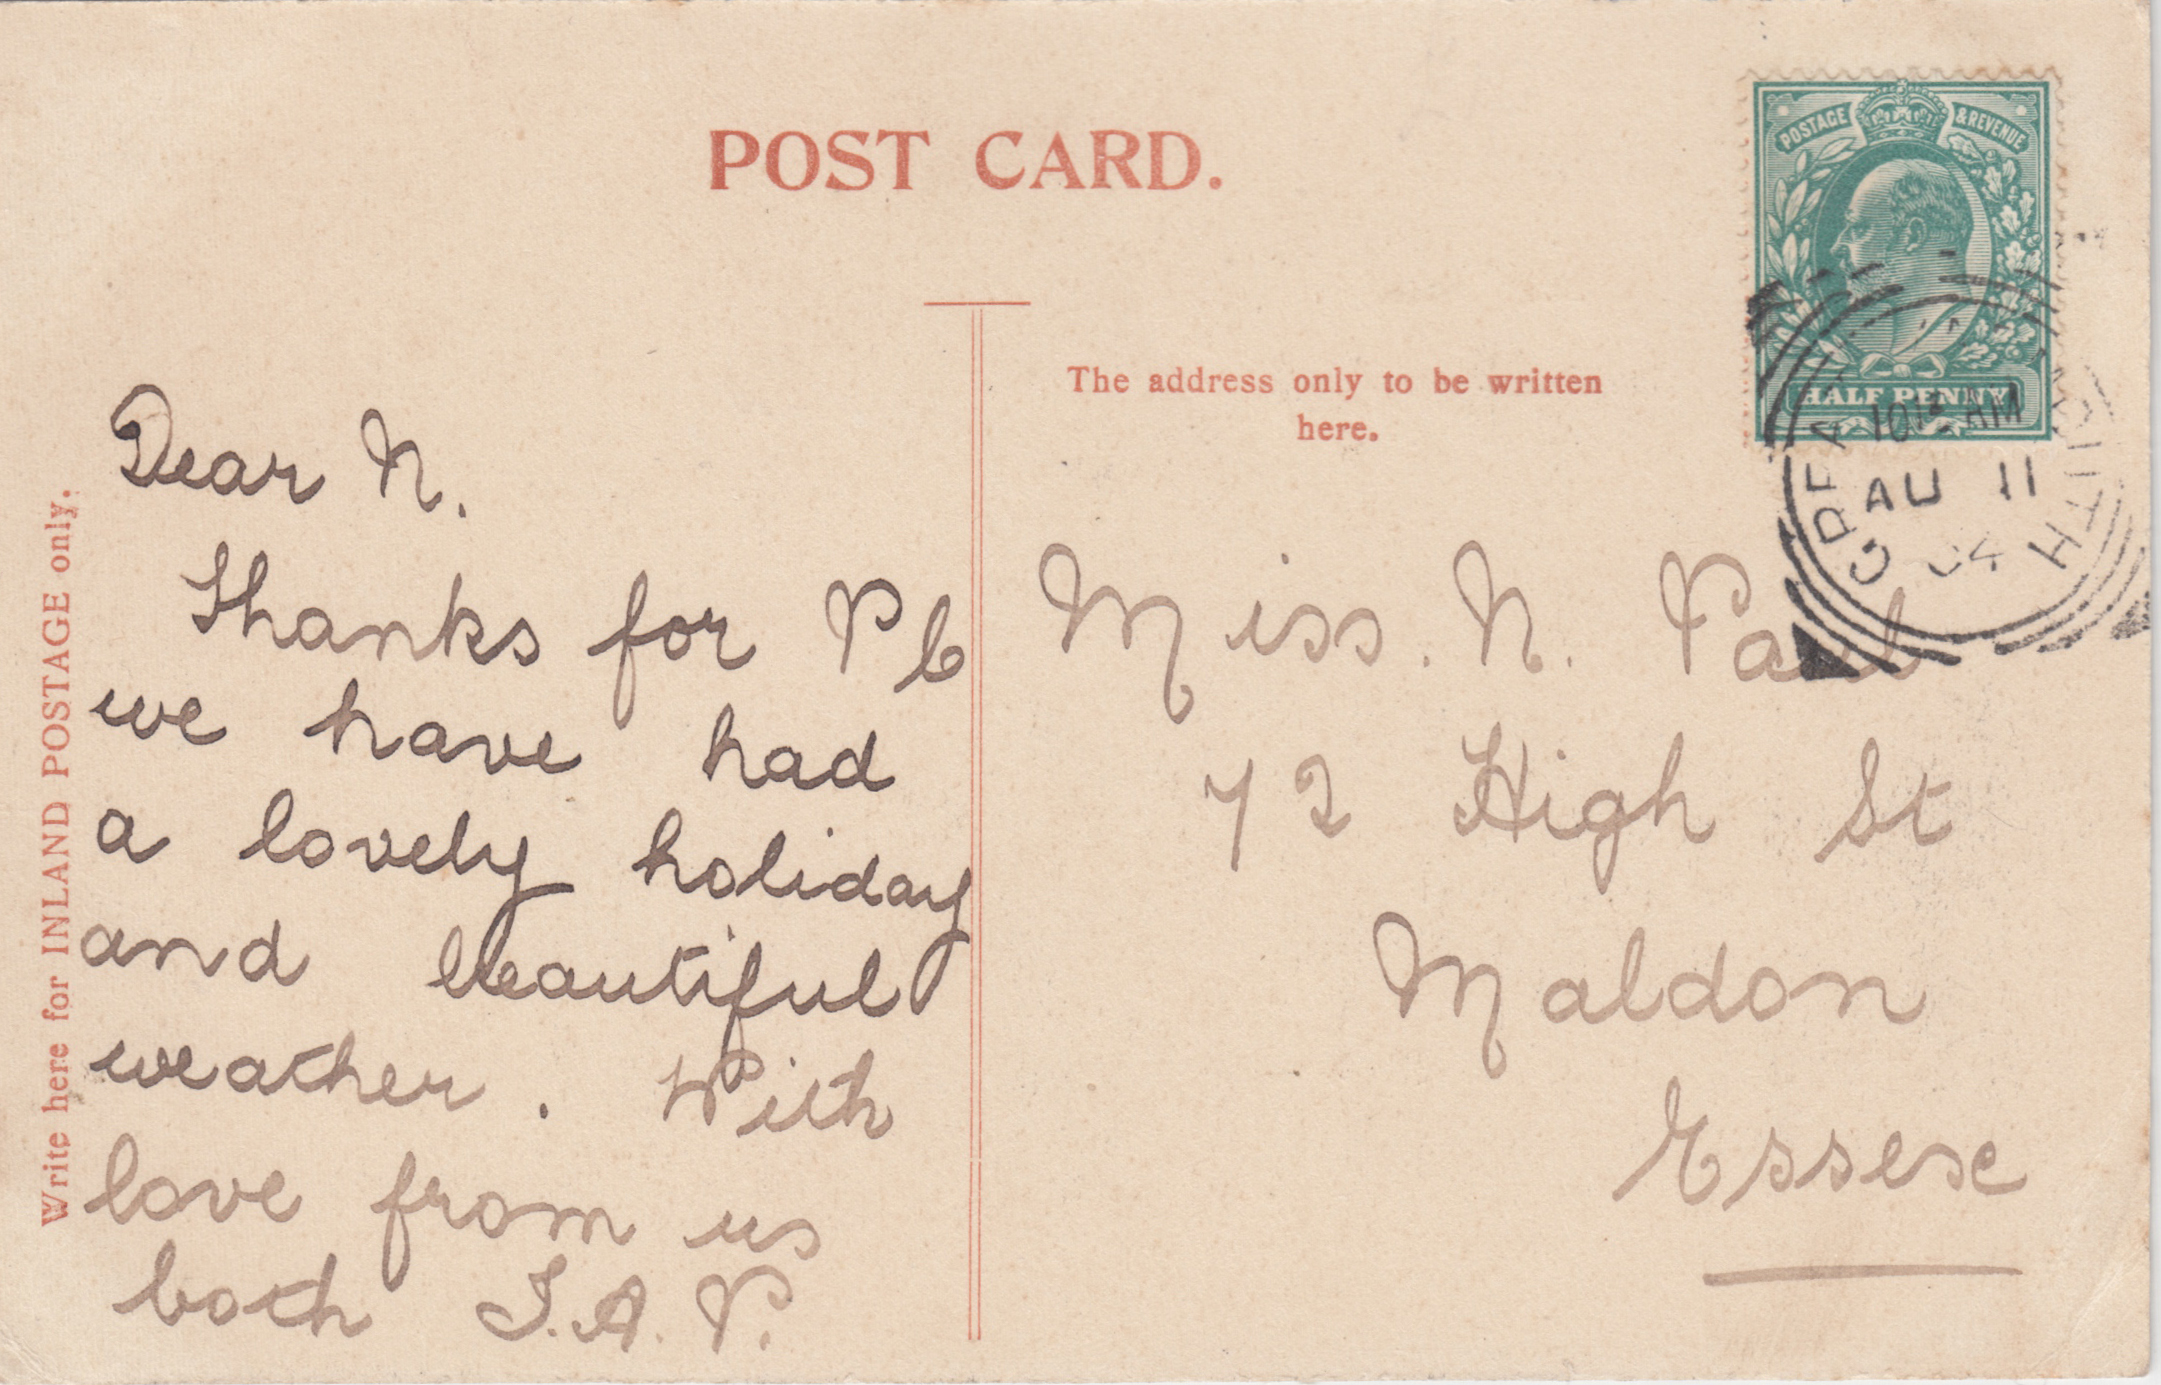 POST CARD.
POSTAGE & REVENUE
HALF PENNY
GREAT
AM
AU 11
04
The address only to be written
here.
Write here for INLAND POSTAGE only.
Dear N.
Thanks for Pc
we have had
a lovely holiday
and beautiful
weather. With
love from us
both J.A.P.
Miss. N. Paul
72 High St
Maldon
Essex